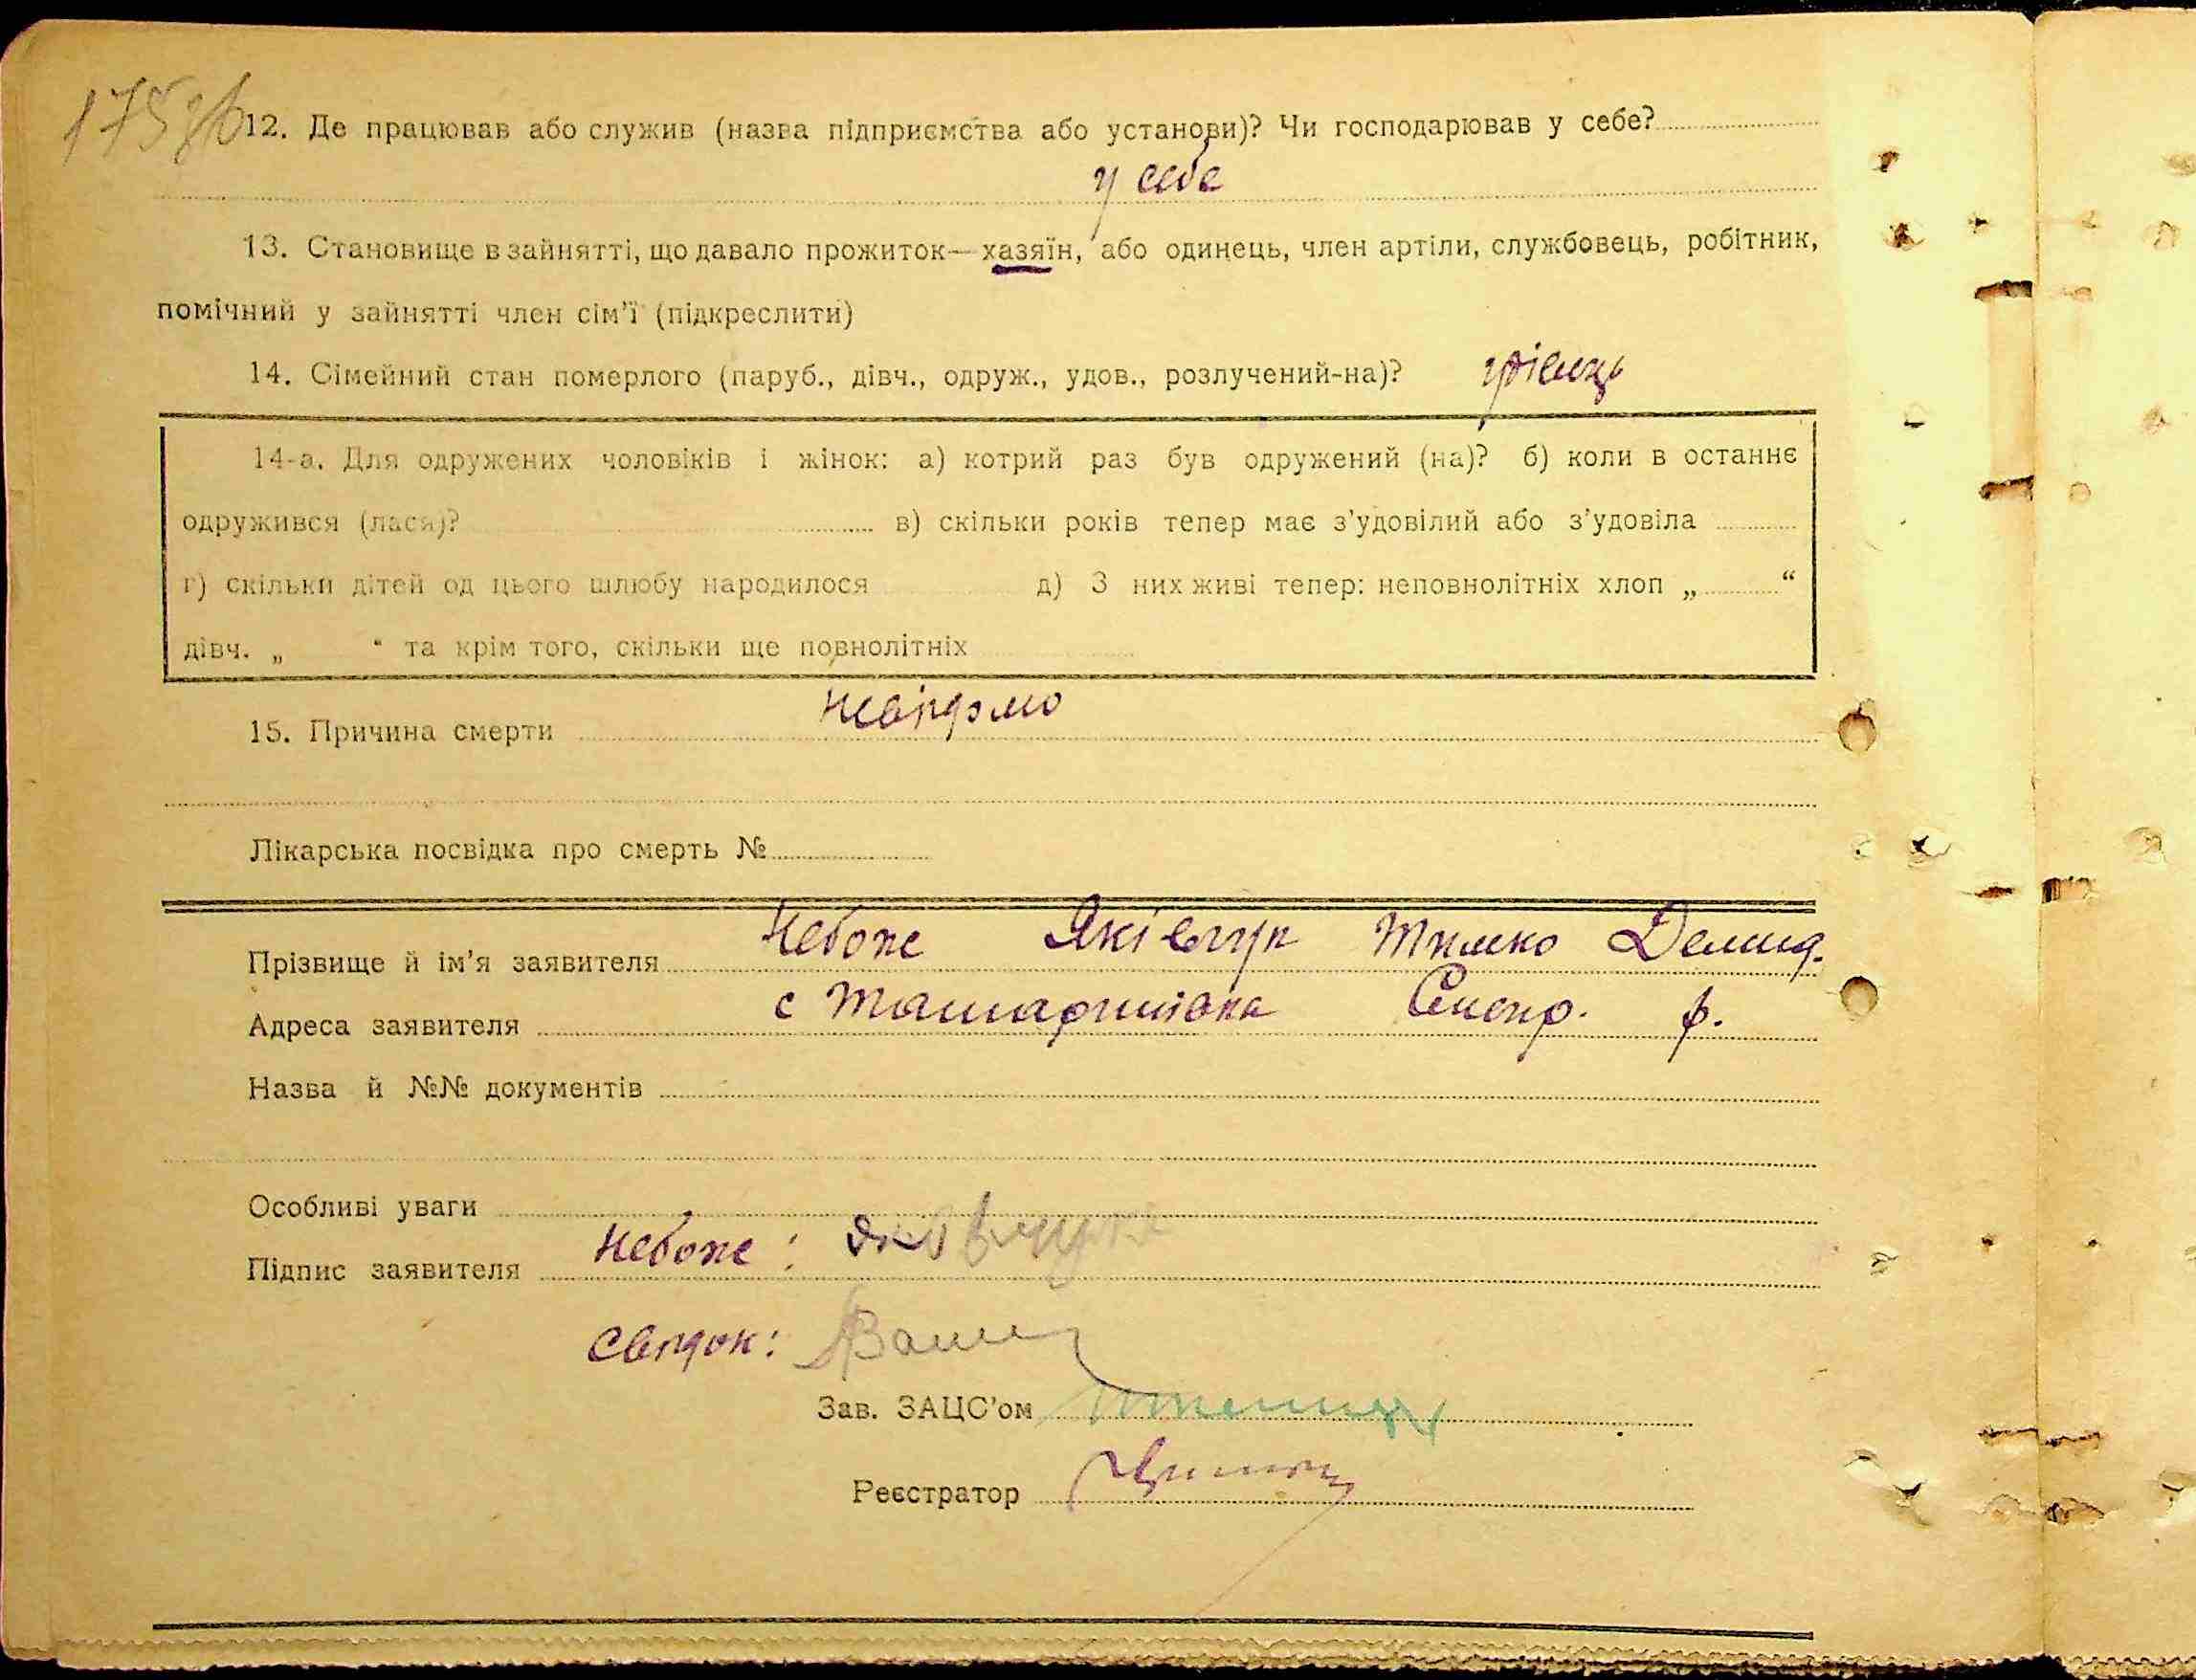 175 зв
12. Де працював або служив (назва підприємства або установи)? Чи господарював у себе?
у себе
13. Становище в зайнятті, що давало прожиток — хазяїн, або одинець, член артіли, службовець, робітник,
помічний у зайнятті член сім'ї (підкреслити)
14. Сімейний стан померлого (паруб., дівч., одруж., удов., розлучений-на)?
14-а. Для одружених чоловіків і жінок: а) котрий раз був одружений (на)? б) коли в останнє
одружився (лася)? в) скільки років тепер має з'удовілий або з'удовіла
г) скільки дітей од цього шлюбу народилося д) З них живі тепер: неповнолітніх хлоп „ “
дівч. „ “ та крім того, скільки ще повнолітніх
15. Причина смерти невідомо
Лікарська посвідка про смерть №
Прізвище й ім'я заявителя Небоже Яківчук Тимко Демид.
Адреса заявителя с
Назва й №№ документів
Особливі уваги
Підпис заявителя Небоже:
Свідок:
Зав. ЗАЦС'ом
Реєстратор